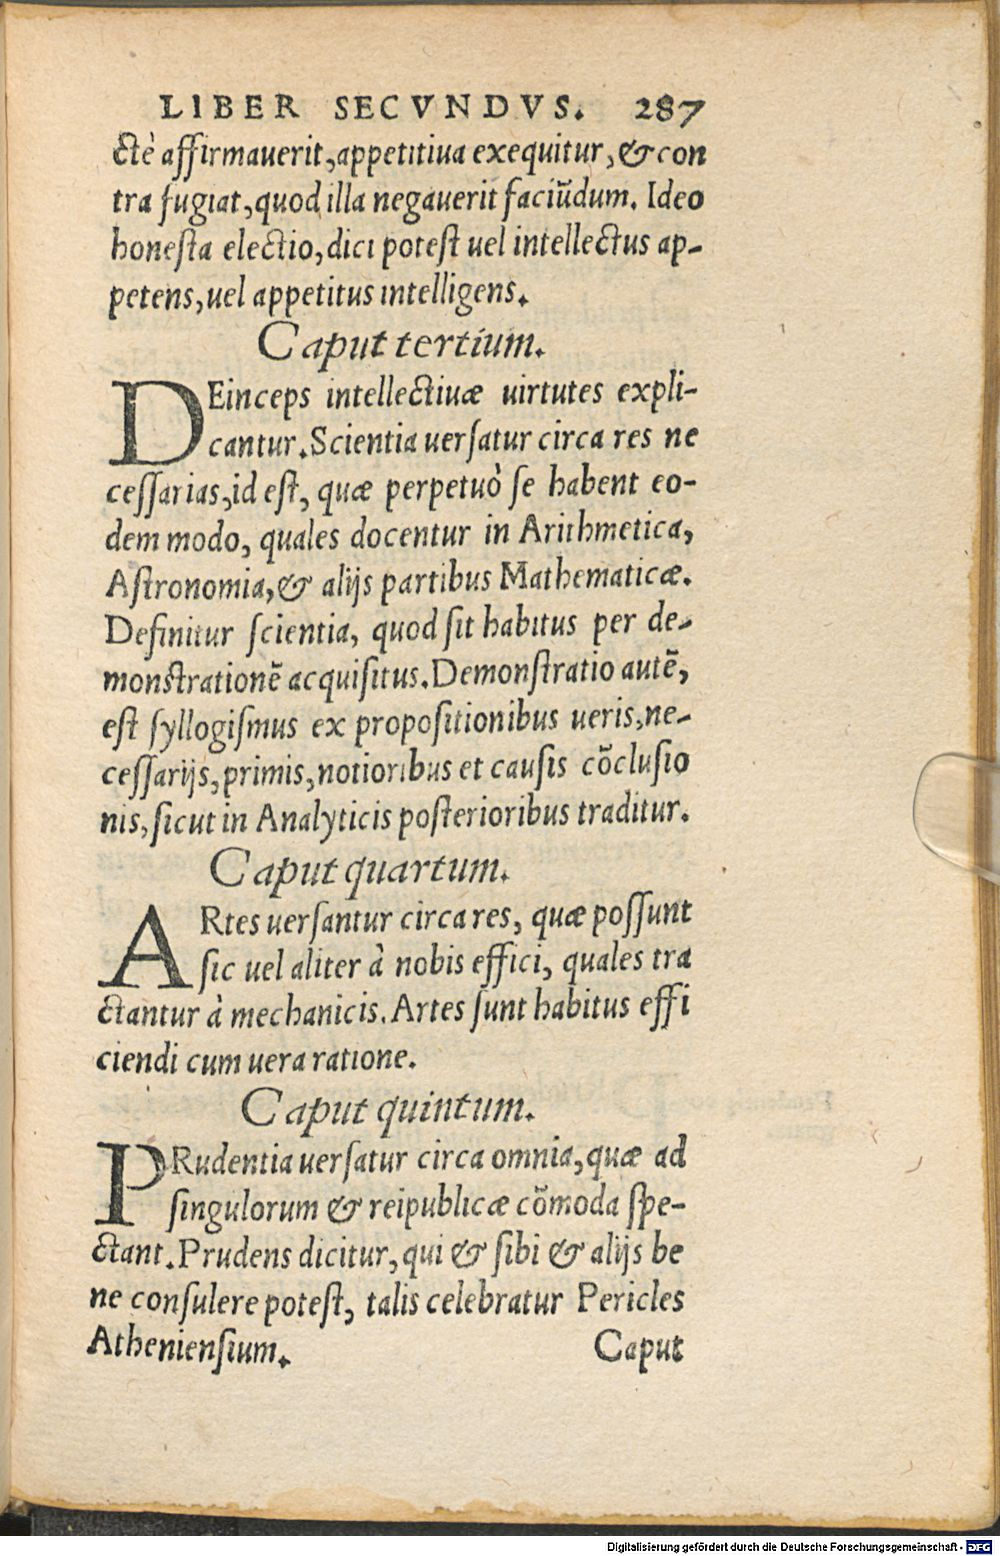 LIBER SECVNDVS. 287
ctè affirmauerit, appetitiua exequitur, & con
tra fugiat, quod illa negauerit faciũdum. Ideo
honesta electio, dici potest uel intellectus ap-
petens, uel appetitus intelligens.
Caput tertium.
DEinceps intellectiuæ uirtutes expli-
cantur. Scientia uersatur circa res ne
cessarias, id est, quæ perpetuò se habent eo-
dem modo, quales docentur in Arithmetica,
Astronomia, & alijs partibus Mathematicæ.
Definitur scientia, quod sit habitus per de-
monstrationẽ acquisitus. Demonstratio autẽ,
est syllogismus ex propositionibus ueris, ne-
cessarijs, primis, notioribus et causis cõclusio
nis, sicut in Analyticis posterioribus traditur.
Caput quartum.
ARtes uersantur circa res, quæ possunt
sic uel aliter à nobis effici, quales tra
ctantur à mechanicis. Artes sunt habitus effi
ciendi cum uera ratione.
Caput quintum.
PRudentia uersatur circa omnia, quæ ad
singulorum & reipublicæ cõmoda spe-
ctant. Prudens dicitur, qui & sibi & alijs be
ne consulere potest, talis celebratur Pericles
Atheniensium. Caput
Digitalisierung gefördert durch die Deutsche Forschungsgemeinschaft - DFG